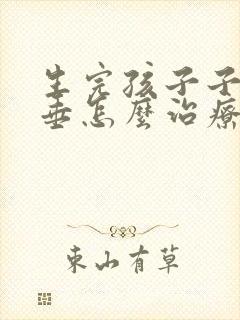 生完孩子子
垂怎麼治療
東山有草